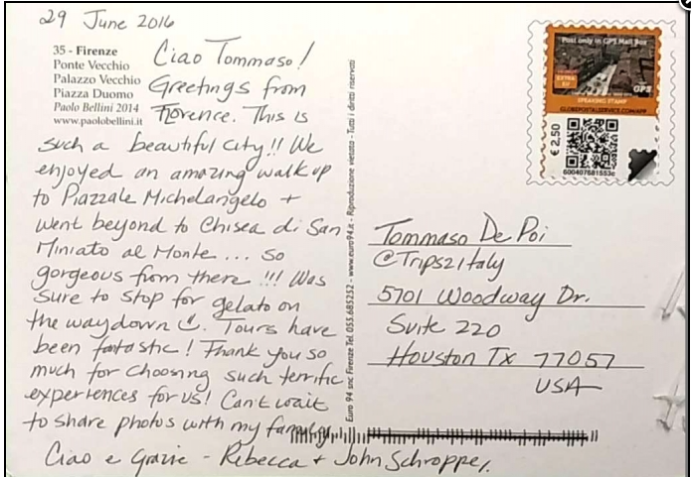 29 June 2016
35 - Firenze
Ponte Vecchio
Palazzo Vecchio
Piazza Duomo
Paolo Bellini 2014
www.paolobellini.it
Ciao Tommaso!
Greetings from
Florence. This is
such a beautiful city!! We
enjoyed an amazing walk up
to Piazzale Michelangelo +
went beyond to Chisea di San
Miniato al Monte... so
gorgeous from there!!! Was
sure to stop for gelato on
the way down. Tours have
been fatastic! Thank you so
much for choosing such terrific
experiences for us! Can't wait
to share photos with my family.
Ciao e Grazie - Rebecca + John Schropper.
Euro 94 snc Firenze Tel. 055.685252 - www.euro94.it - Riproduzione vietata - Tutti i diritti riservati
Post only in GPS Mail Box
EXTRA
EU
GPS
SPEAKING STAMP
GLOBEPOSTALSERVICE.COM/APP
€ 2,50
Tommaso De Poi
@Trips2Italy
5701 Woodway Dr.
Suite 220
Houston Tx 77057
USA